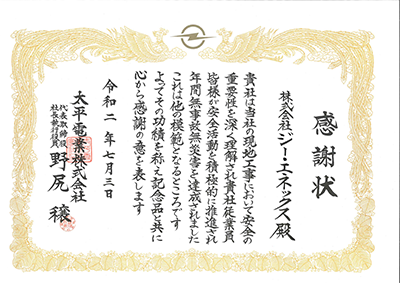 感謝状
株式会社ジー・エネックス殿
貴社は当社の現地工事において安全の
重要性を深く理解され貴社従業員
皆様が安全活動を積極的に推進され
年間無事故無災害を達成されました
これは他の模範となるところです
よってその功績を称え記念品と共に
心から感謝の意を表します
令和二年七月三日
太平電業株式会社
代表取締役
社長執行役員
野尻穣